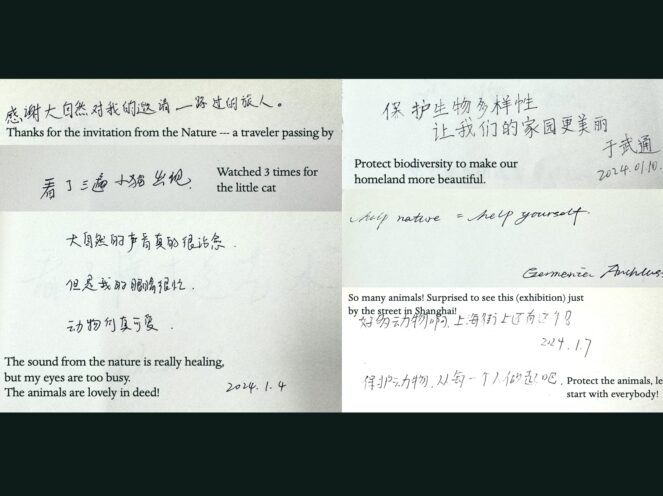 感谢大自然对我的邀请 — 路过的旅人。
Thanks for the invitation from the Nature --- a traveler passing by
看了三遍小猫出现.
Watched 3 times for
the little cat
大自然的声音真的很治愈.
但是我的眼睛很忙.
动物们真可爱.
The sound from the nature is really healing,
but my eyes are too busy.
The animals are lovely in deed!
2024.1.4
保护生物多样性
让我们的家园更美丽
于武通
2024.01.10.
Protect biodiversity to make our
homeland more beautiful.
help nature = help yourself.
So many animals! Surprised to see this (exhibition) just
by the street in Shanghai!
好多动物啊,上海街上还有这个!
2024.1.7
保护动物,从每一个人做起吧.
Protect the animals, le
start with everybody!